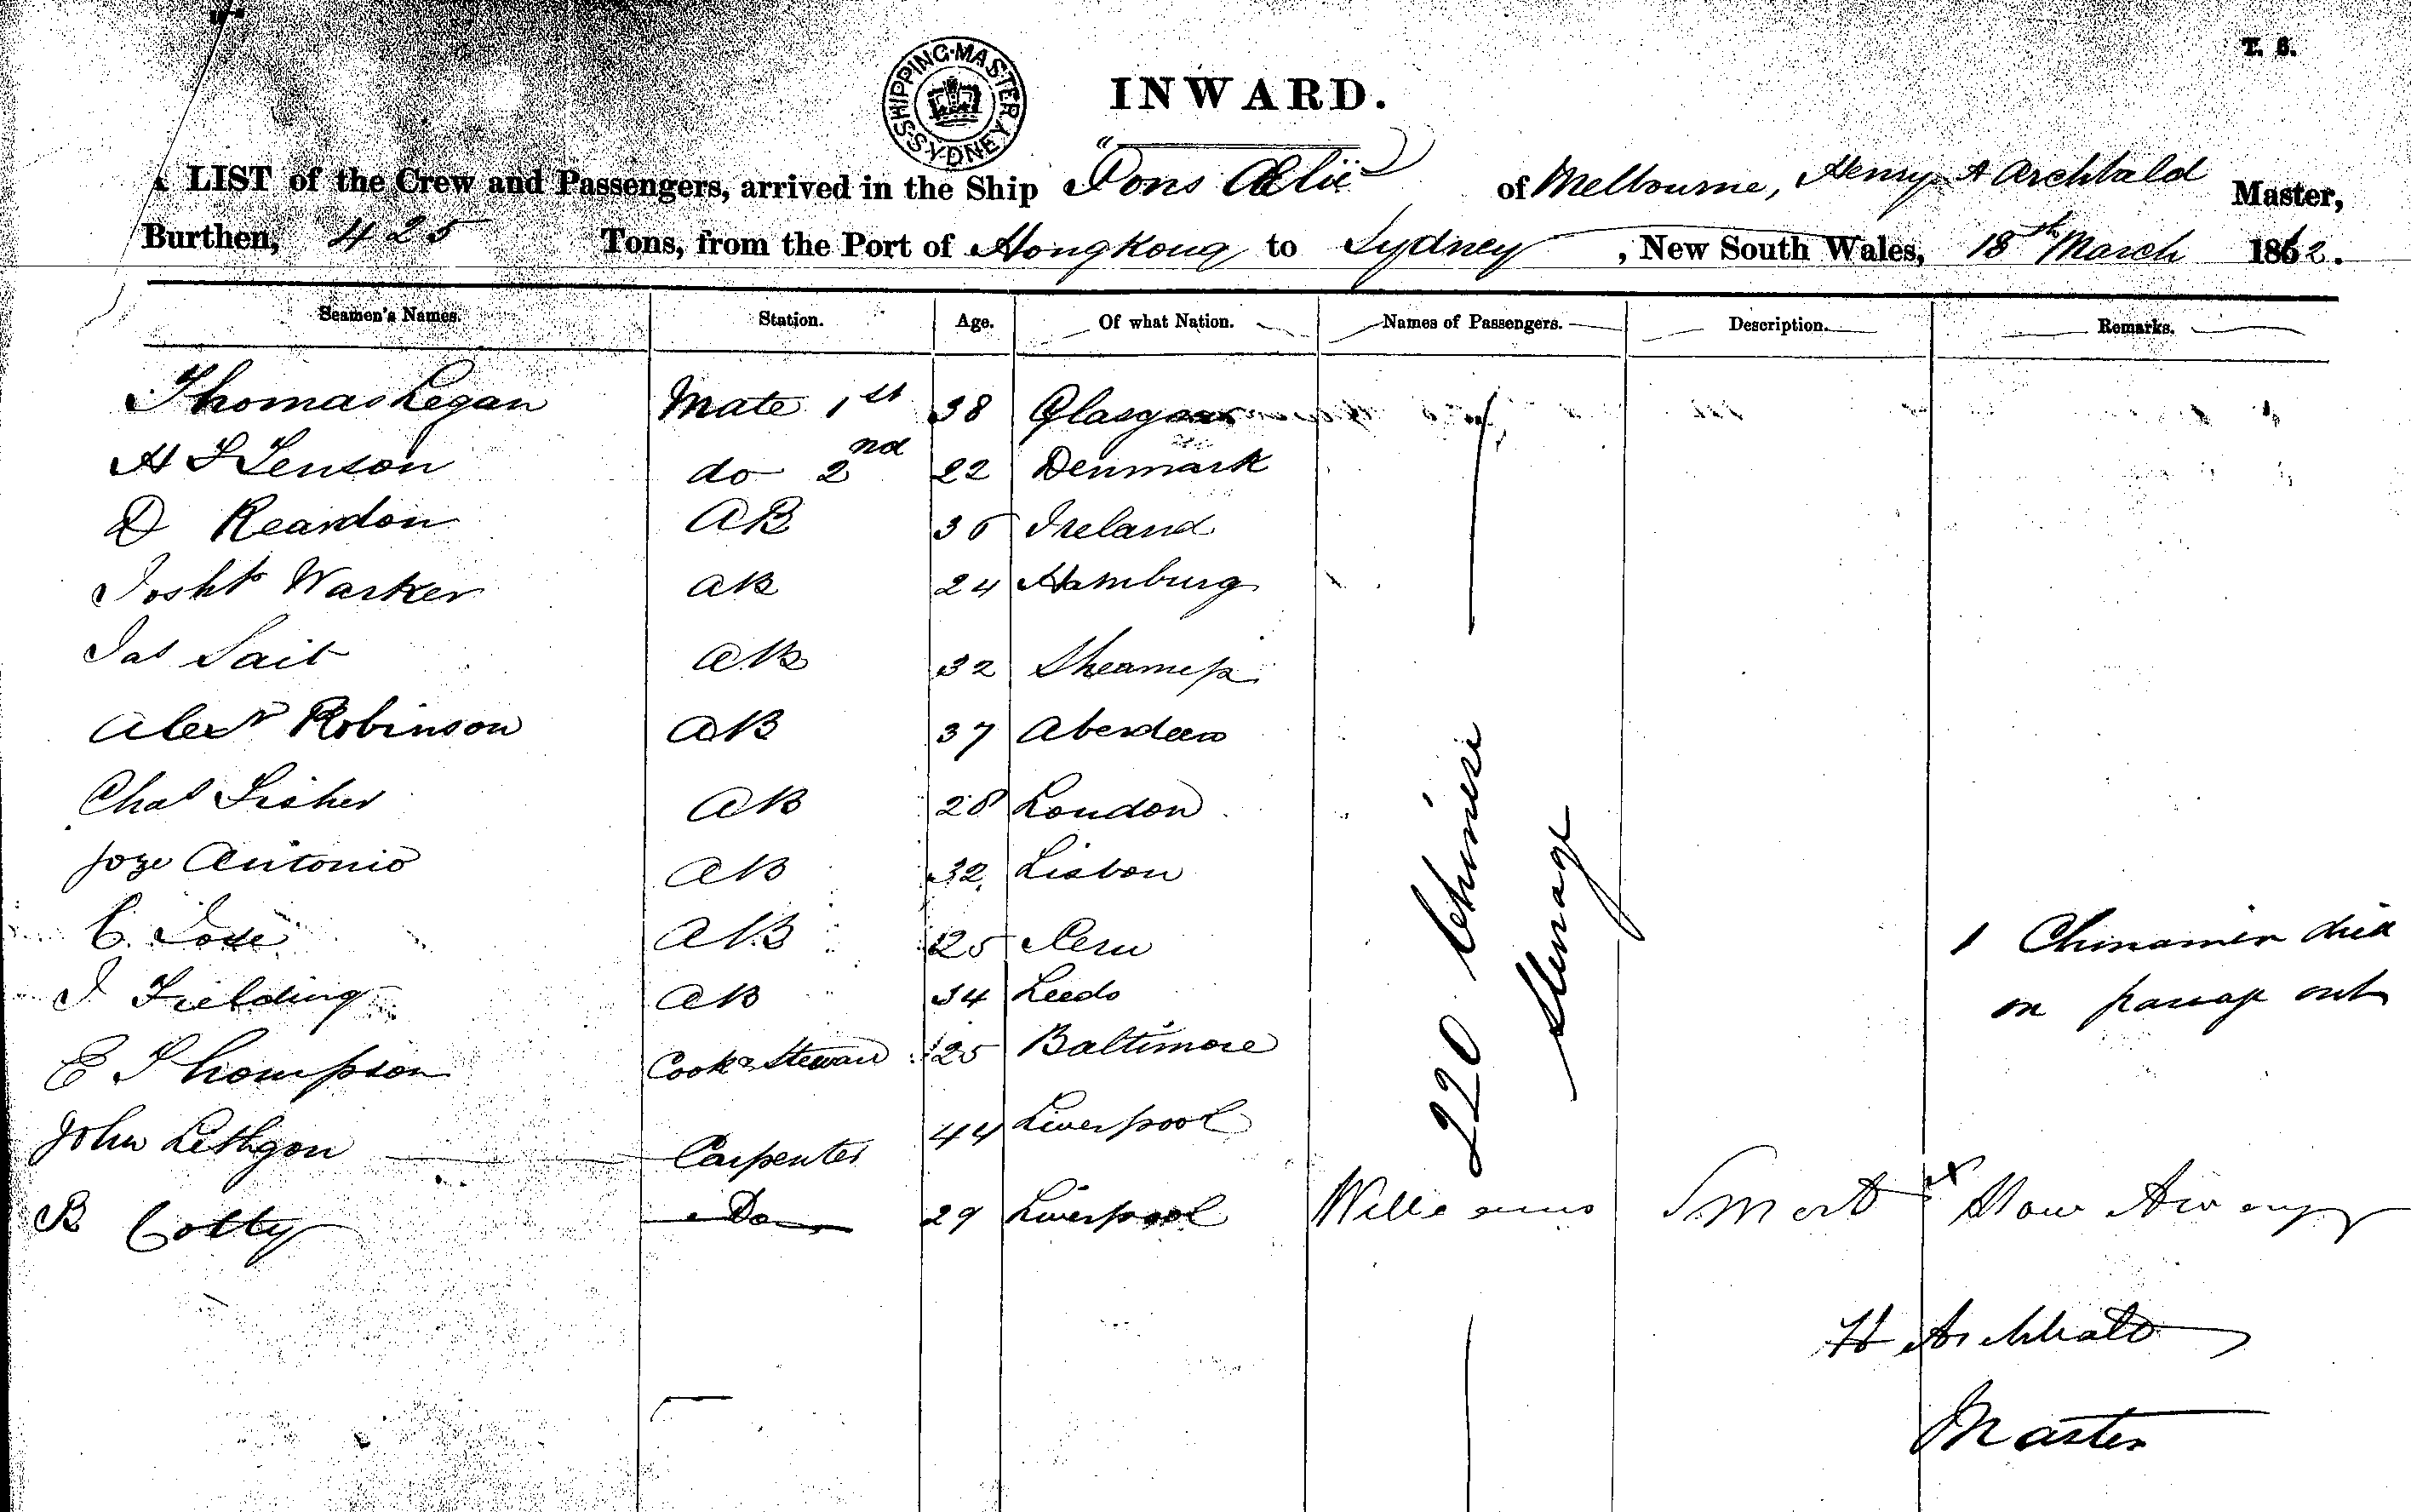 T. 6.
SHIPPING MASTER SYDNEY
INWARD.
A LIST of the Crew and Passengers, arrived in the Ship "Pons Ælii" of Melbourne, Henry A Archbald Master,
Burthen, 425 Tons, from the Port of Hong Kong to Sydney, New South Wales, 18th March 1862.
Seamen's Names. Station. Age. Of what Nation. Names of Passengers. Description. Remarks.
Thomas Legan Mate 1st 38 Glasgow
Denmark do 2nd 22
D Reardon AB 36 Ireland
Warker AB 24 Hamburg
Jas Sait AB 32
Alexr Robinson AB 37 Aberdeen
Chas Fisher AB 28 London
Joze Antonio AB 32 Lisbon
C. Jose AB 25 Peru
J Fielding AB 34 Leeds
E Thompson Cook & Steward 25 Baltimore
John Lethgon Carpenter 44 Liverpool
B Cotty Do 29 Liverpool Williams Smart x Stow Away
220 Chinese
Steerage
1 Chinamen died
on passage out
H Archbald
Master